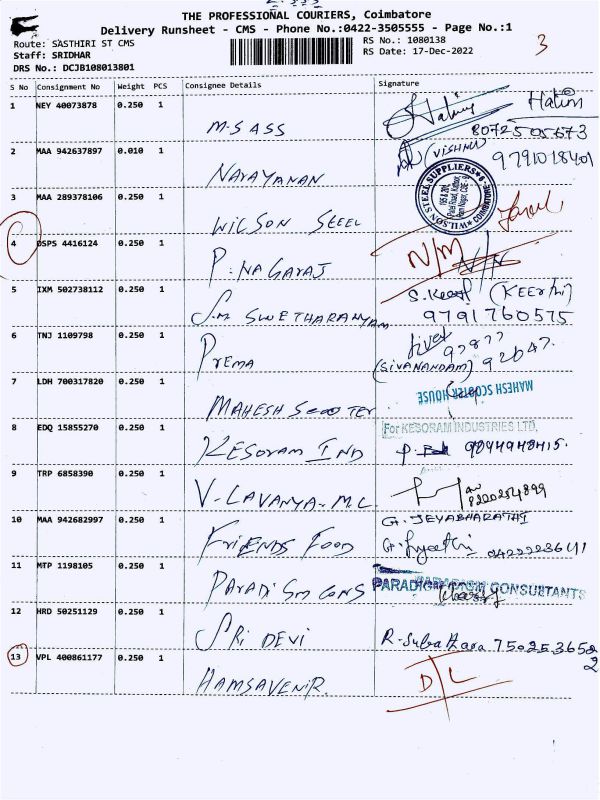 THE PROFESSIONAL COURIERS, Coimbatore
Delivery Runsheet - CMS - Phone No.:0422-3505555 - Page No.:1
Route: SASTHIRI ST CMS
Staff: SRIDHAR
DRS No.: DCJB108013801
RS No.: 1080138
RS Date: 17-Dec-2022
3
S No Consignment No Weight PCS Consignee Details Signature
1 NEY 40073878 0.250 1
M.S ASS
Hatim
8072505673
2 MAA 942637897 0.010 1
NARAYANAN
(VISHNU)
9791018401
3 MAA 289378106 0.250 1
WILSON STEEL
WILSON STEEL SUPPLIERS
COIMBATORE
4 DSPS 4416124 0.250 1
P. NAGARAJ
N/M
5 IXM 502738112 0.250 1
S.M SWETHARANYAM
(KEERTHI)
9791760575
6 TNJ 1109798 0.250 1
PREMA
(SIVANANDAM)
7 LDH 700317820 0.250 1
MAHESH SCOOTER
MAHESH SCOOTER HOUSE
8 EDQ 15855270 0.250 1
KESORAM IND
For KESORAM INDUSTRIES LTD,
9 TRP 6858390 0.250 1
V-LAVANYA-M.C.
10 MAA 942682997 0.250 1
FRIENDS FOOD
G. JEYABHARATHI
11 MTP 1198105 0.250 1
PARADISM CONS
PARADIGM CONSULTANTS
12 HRD 50251129 0.250 1
SRI DEVI
13 VPL 400861177 0.250 1
HAMSAVENI R.
D/L